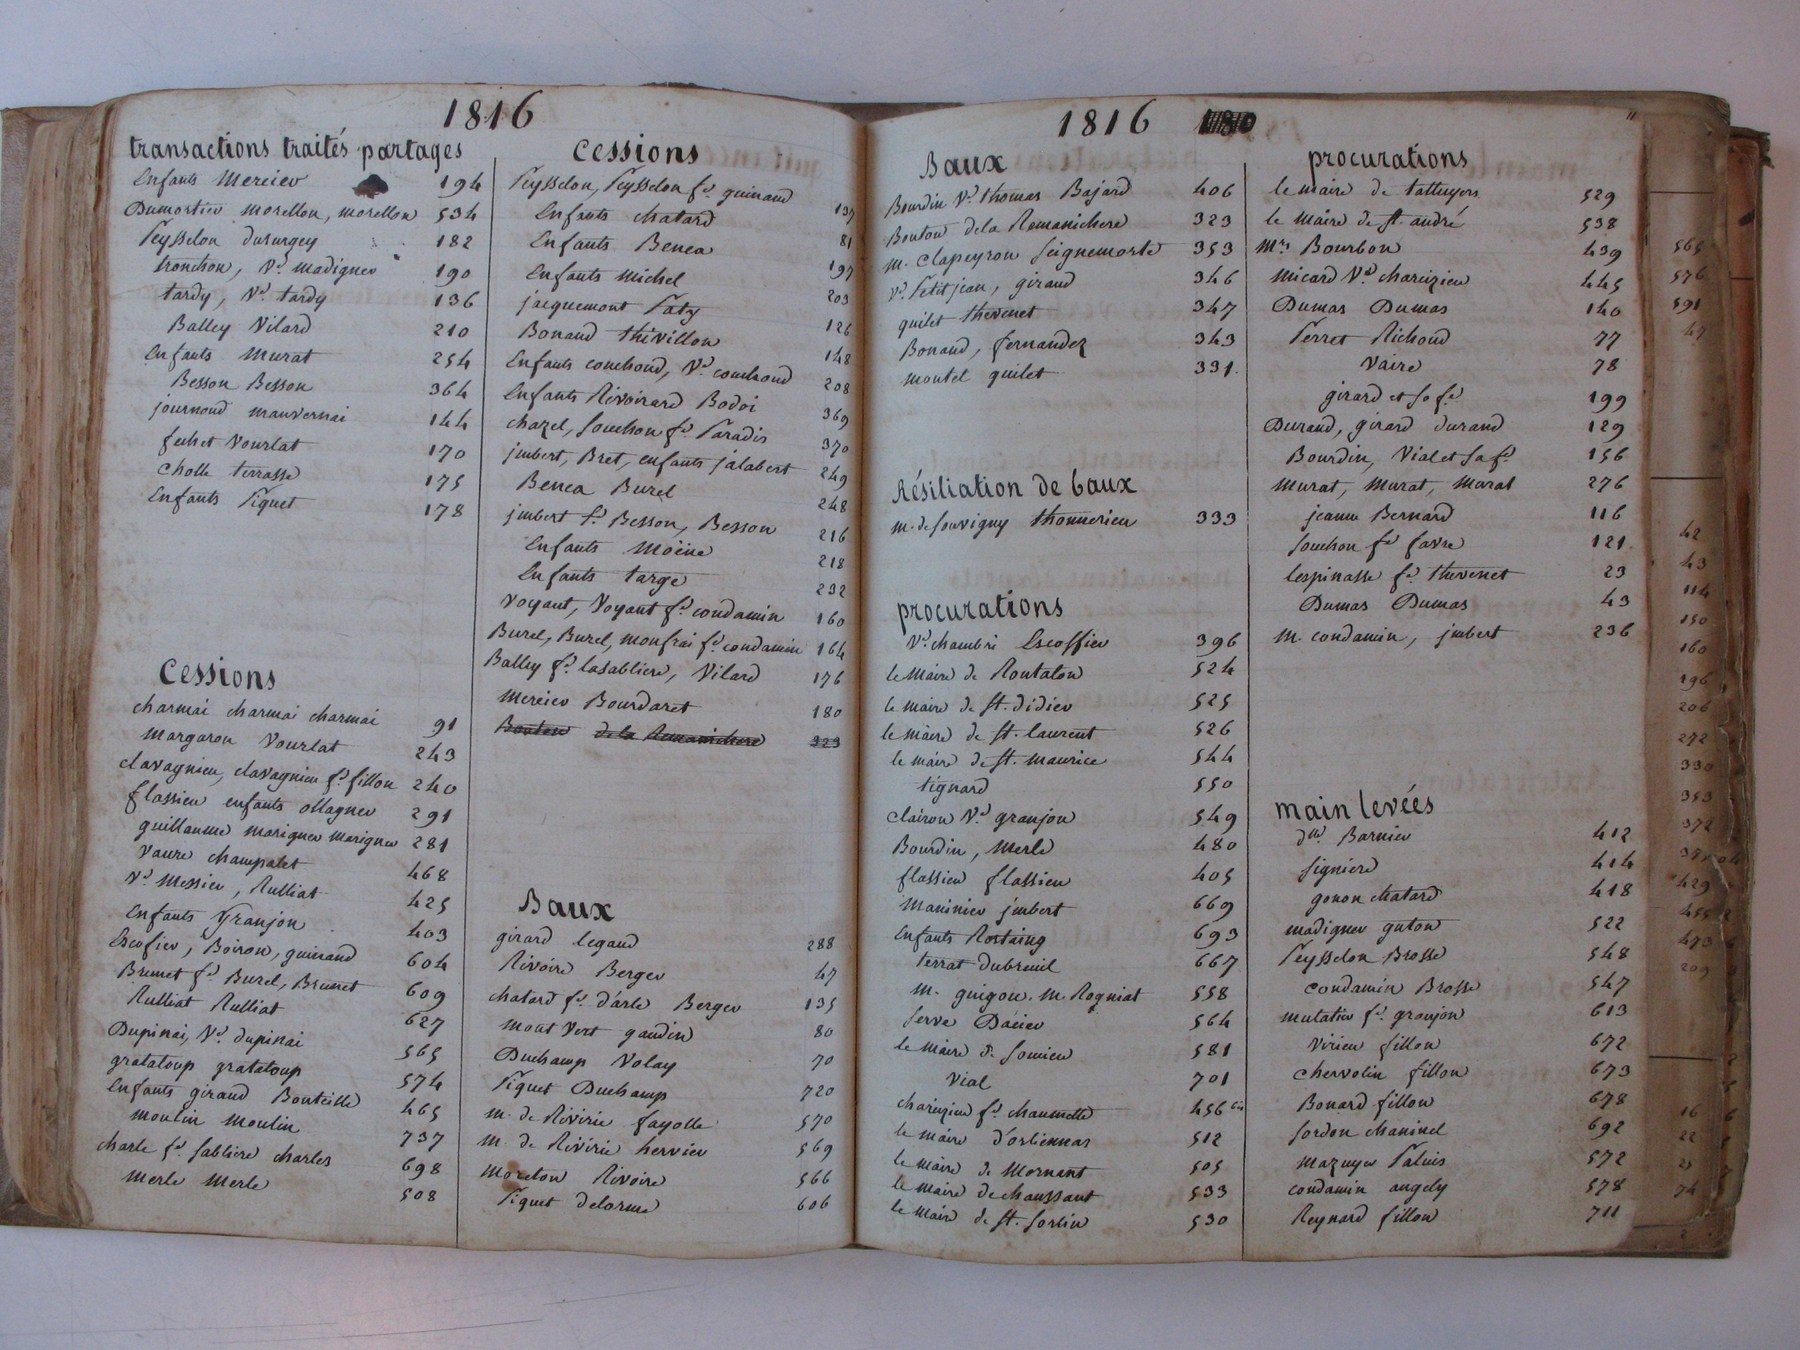 1816
transactions traités partages
Enfants Mercier 194
Dumortier Morellon, Morellon 534
Peysselon dururgey 182
tronchon, Ve. Madignier 190
tardy, Ve. tardy 136
Balley Vilard 210
Enfants Murat 254
Besson Besson 364
journoud mauvernai 144
fuhet Vourlat 170
Cholle terrasse 175
Enfants Piquet 178
Cessions
charmai charmai charmai 91
Margaron Vourlat 243
clavagnieu, clavagnieu fe. fillon 240
flassieu enfants ollagnier 291
guillaume marignier marignier 281
Vaure champalet 468
Ve. Messier, Rulliat 425
Enfants Granjon 403
Escofier, Boiron, guinand 604
Brunet fe. Burel, Brunet 609
Rulliat Rulliat 627
Dupinai, Ve. dupinai 565
grataloup grataloup 574
Enfants giraud Bouteille 465
moulin moulin 737
charle fe. sabliere charles 698
Merle Merle 508
Cessions
Peysselon, Peysselon fe. guinand 137
Enfants chatard 81
Enfants Benea 197
Enfants Michel 203
jacquemont Paty 126
Bonand thivillon 148
Enfants couchoud, Ve. couchoud 208
Enfants Rivoirard Bodoi 369
chazel, souchon fe. Paradis 370
jmbert, Bret, enfants jalabert 249
Benea Burel 248
jmbert fe. Besson, Besson 216
Enfants Moëne 218
Enfants targe 232
Voyant, Voyant fe. condamin 160
Burel, Burel, monfrai fe. condamin 164
Balley fe. lasabliere, Vilard 176
Mercier Bourdaret 180
Bouton de la Romanichere 323
Baux
girard legaud 288
Rivoire Berger 47
chatard fe. d'arle Berger 135
Mont Vert gaudin 80
Duchamp Volay 70
Piquet Duchamp 720
m. de Rivirie fayolle 570
m. de Rivirie hervier 569
Moreton Rivoire 566
Piquet delorme 606
1816
Baux
Bourdin Ve. thomas Bajard 406
Bouton de la Romanichere 323
m. clapeyron Seignemorte 353
Ve. Petit jean, giraud 346
quilet thevenet 347
Bonand, fernandez 343
montel quilet 331
Résiliation de baux
m. de souvigny thonnerieu 333
procurations
Ve. chambri Escoffier 396
le maire de Rontalon 524
le maire de st. didier 525
le maire de st. laurent 526
le maire de st. maurice 544
tignard 550
clairon Ve. granjon 549
Bourdin, Merle 480
flassieu flassieu 405
Maninier jmbert 669
Enfants Rostaing 693
terrat dubreuil 667
m. guigou. m. Rogniat 558
Serve Dacier 564
le maire de soucieu 581
Vial 701
charezieu fe. chaumette 456 bis
le maire d'orlienas 512
le maire de Mornant 505
le maire de chaussant 533
le maire de st. sorlin 530
procurations
le maire de talluyers 529
le maire de st. andré 538
Mrs Bourbon 439
Micard Ve. charezieu 445
Dumas Dumas 140
Perret Richoud 77
Vaire 78
girard et sa fe. 199
Durand, girard durand 129
Bourdin, Vial et sa fe. 156
Murat, Murat, Murat 276
jeanne Bernard 116
souchon fe. favre 121
lespinasse fe. thevenet 23
Dumas Dumas 43
m. condamin, jmbert 236
main levées
dlle Barnier 412
signiere 414
gonon chatard 418
madignier guton 522
Peysselon Brosse 548
condamin Brosse 547
mutatier fe. granjon 613
Virieu fillon 672
chervolin fillon 673
Bonard fillon 678
sordon chaninel 692
Mazuyer Paluis 572
condamin angely 578
Reynard fillon 711
565
576
591
47
42
43
114
150
160
196
206
272
330
353
372
429
455
473
209
16
22
23
74